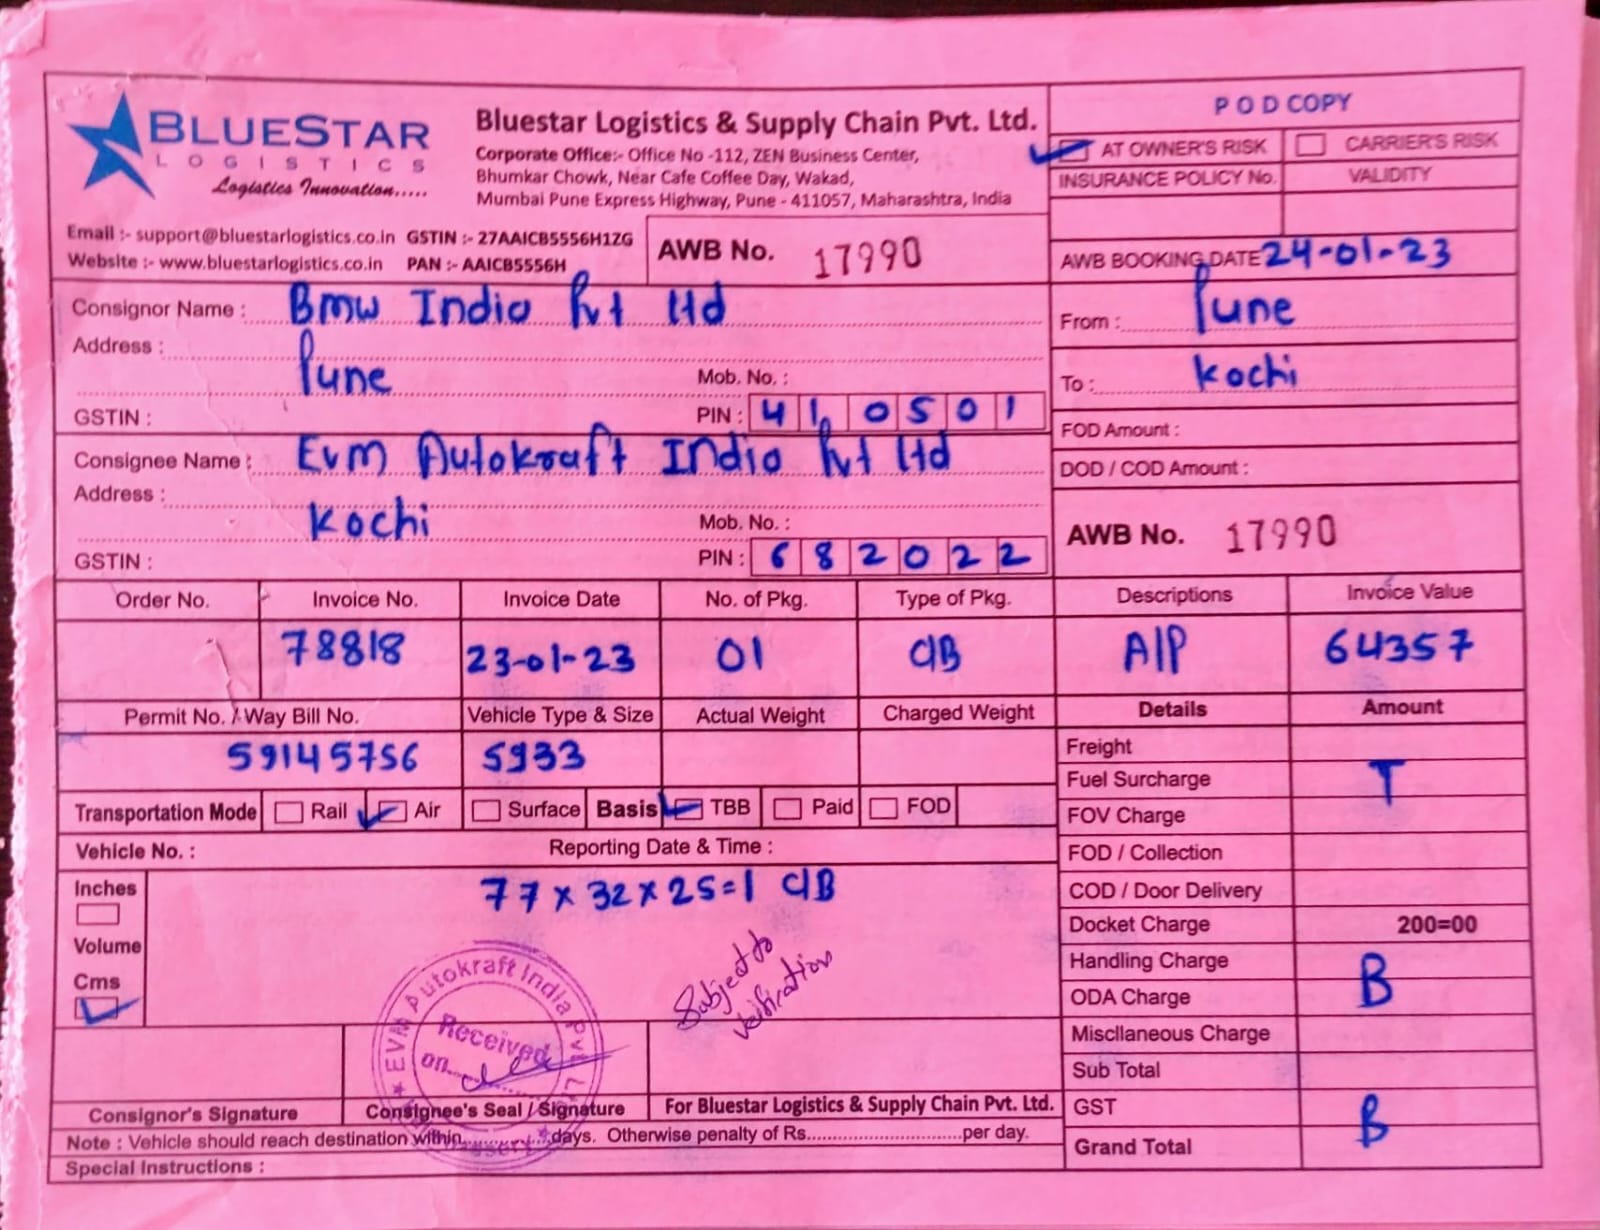 BLUESTAR
LOGISTICS
Logistics Innovation.....
Bluestar Logistics & Supply Chain Pvt. Ltd.
Corporate Office:- Office No -112, ZEN Business Center,
Bhumkar Chowk, Near Cafe Coffee Day, Wakad,
Mumbai Pune Express Highway, Pune - 411057, Maharashtra, India
P O D COPY
AT OWNER'S RISK CARRIER'S RISK
INSURANCE POLICY No. VALIDITY
Email :- support@bluestarlogistics.co.in GSTIN :- 27AAICB5556H1ZG
Website :- www.bluestarlogistics.co.in PAN :- AAICB5556H
AWB No. 17990
AWB BOOKING DATE 24-01-23
Consignor Name : Bmw India Pvt Ltd
Address :
Pune
Mob. No. :
GSTIN :
PIN : 410501
From : Pune
To : Kochi
Consignee Name : Evm Autokraft India Pvt Ltd
Address :
Kochi
Mob. No. :
GSTIN :
PIN : 682022
FOD Amount :
DOD / COD Amount :
AWB No. 17990
Order No. Invoice No. Invoice Date No. of Pkg. Type of Pkg. Descriptions Invoice Value
78818 23-01-23 01 C/B A/P 64357
Permit No. / Way Bill No. Vehicle Type & Size Actual Weight Charged Weight Details Amount
59145756 5933
Transportation Mode Rail Air Surface Basis TBB Paid FOD
Vehicle No. : Reporting Date & Time :
Inches
Volume
Cms
77 x 32 x 25 = 1 C/B
Subject to
verification
EVM Autokraft India Pvt. L
Received
on
Freight
Fuel Surcharge T
FOV Charge
FOD / Collection
COD / Door Delivery
Docket Charge 200=00
Handling Charge
ODA Charge B
Miscllaneous Charge
Sub Total
GST B
Grand Total
Consignor's Signature Consignee's Seal / Signature For Bluestar Logistics & Supply Chain Pvt. Ltd.
Note : Vehicle should reach destination within..........days. Otherwise penalty of Rs..............................per day.
Special Instructions :